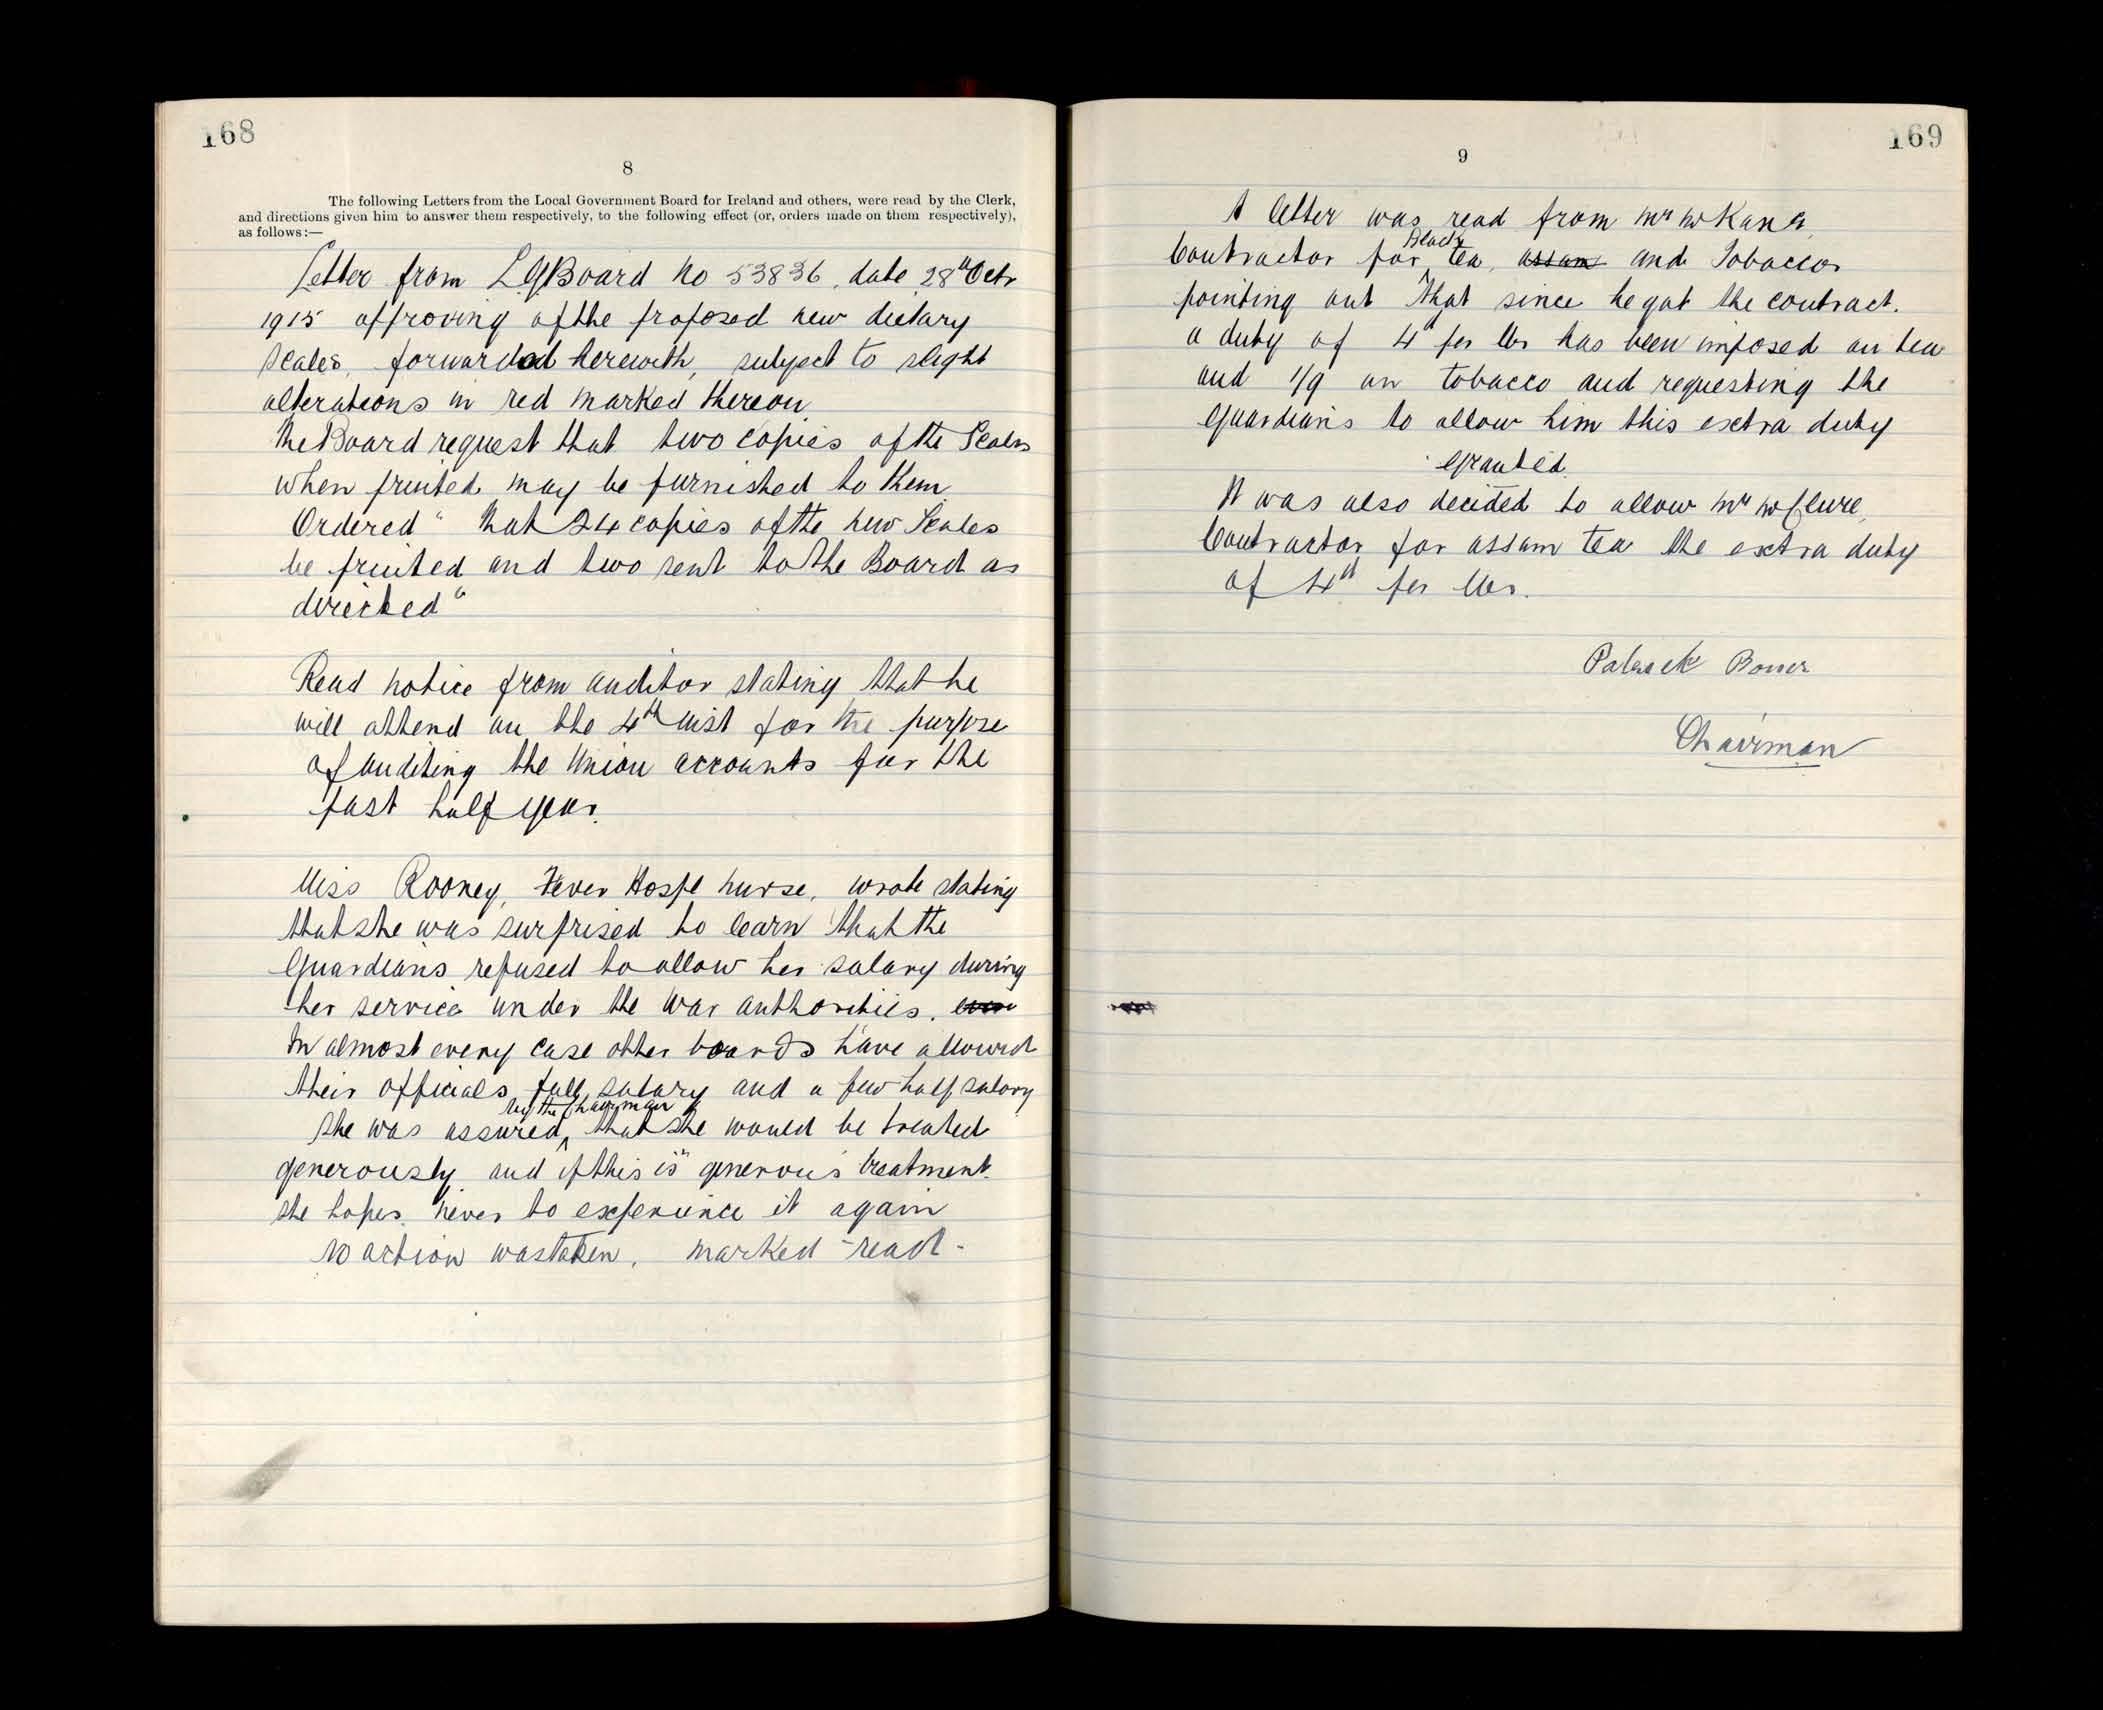 168
8
The following Letters from the Local Government Board for Ireland and others, were read by the Clerk,
and directions given him to answer them respectively, to the following effect (or, orders made on them respectively),
as follows:—
Letter from LGBoard No 53836, date 28th Octr
1915 approving of the proposed new dietary
scales, forwarded herewith, subject to slight
alterations in red marked thereon
The Board request that two copies of the Scales
when printed may be furnished to them
Ordered "That 24 copies of the new Scales
be printed and two sent to the Board as
directed"
Read notice from auditor stating that he
will attend on the 4th inst for the purpose
of auditing the Union accounts for the
past half year.
Miss Rooney, Fever Hospl nurse, wrote stating
that she was surprised to learn that the
Guardians refused to allow her salary during
her service under the War authorities.
In almost every case other boards have allowed
their officials full salary and a few half salary
She was assured by the Chairman that she would be treated
generously and if this is "generous treatment
she hopes never to experience it again
No action was taken. marked "read"
169
9
A letter was read from Mr McKane,
Contractor for Black tea, assam and Tobacco
pointing out that since he got the contract.
a duty of 4d per lb has been imposed on tea
and 1/9 on tobacco and requesting the
Guardians to allow him this extra duty
Granted
It was also decided to allow Mr McClure,
Contractor for assam tea the extra duty
of 4d per lb.
Patrick Boner
Chairman